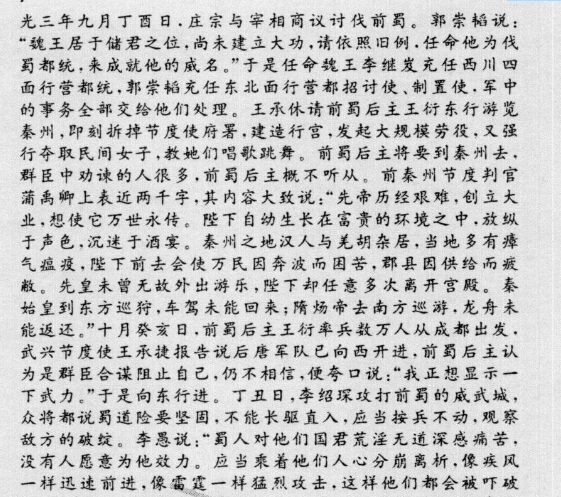 光三年九月丁酉日，庄宗与宰相商议讨伐前蜀。郭崇韬说：
“魏王居于储君之位，尚未建立大功，请依照旧例，任命他为伐
蜀都统，来成就他的威名。”于是任命魏王李继岌充任西川四
面行营都统，郭崇韬充任东北面行营都招讨使、制置使，军中
的事务全部交给他们处理。王承休请前蜀后主王衍东行游览
秦州，即刻拆掉节度使府署，建造行宫，发起大规模劳役，又强
行夺取民间女子，教她们唱歌跳舞。前蜀后主将要到秦州去，
群臣中劝谏的人很多，前蜀后主概不听从。前秦州节度判官
蒲禹卿上表近两千字，其内容大致说：“先帝历经艰难，创立大
业，想使它万世永传。陛下自幼生长在富贵的环境之中，放纵
于声色，沉迷于酒宴。秦州之地汉人与羌胡杂居，当地多有瘴
气瘟疫，陛下前去会使万民因奔波而困苦，郡县因供给而疲
敝。先皇未曾无故外出游乐，陛下却任意多次离开宫殿。秦
始皇到东方巡狩，车驾未能回来；隋炀帝去南方巡游，龙舟未
能返还。”十月癸亥日，前蜀后主王衍率兵数万人从成都出发，
武兴节度使王承捷报告说后唐军队已向西开进，前蜀后主认
为是群臣合谋阻止自己，仍不相信，便夸口说：“我正想显示一
下武力。”于是向东行进。丁丑日，李绍琛攻打前蜀的威武城，
众将都说蜀道险要坚固，不能长驱直入，应当按兵不动，观察
敌方的破绽。李愚说：“蜀人对他们国君荒淫无道深感痛苦，
没有人愿意为他效力。应当乘着他们人心分崩离析，像疾风
一样迅速前进，像雷霆一样猛烈攻击，这样他们都会被吓破